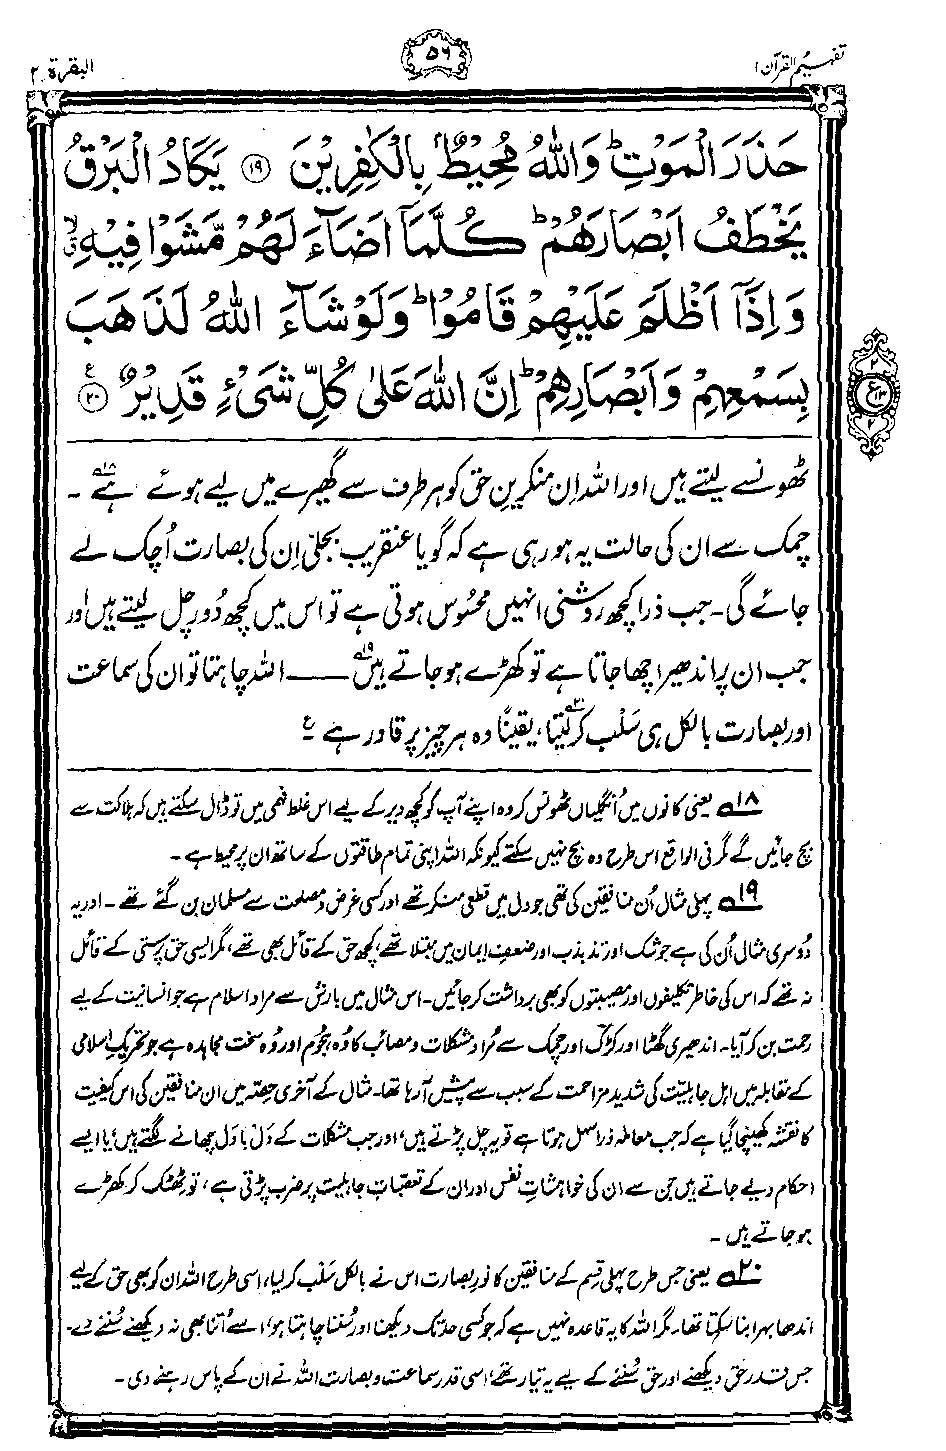 تفہیم القرآن ۱
۵۶
البقرة ۲
حَذَرَ الْمَوْتِ ؕ وَاللّٰهُ مُحِيْطٌۢ بِالْكٰفِرِيْنَ ﴿۱۹﴾ يَكَادُ الْبَرْقُ
يَخْطَفُ اَبْصَارَهُمْ ؕ كُلَّمَاۤ اَضَآءَ لَهُمْ مَّشَوْا فِيْهِ ۙۗ
وَاِذَاۤ اَظْلَمَ عَلَيْهِمْ قَامُوْا ؕ وَلَوْ شَآءَ اللّٰهُ لَذَهَبَ
بِسَمْعِهِمْ وَاَبْصَارِهِمْ ؕ اِنَّ اللّٰهَ عَلٰى كُلِّ شَيْءٍ قَدِيْرٌ ﴿۲۰﴾ ع
۲
ع ۱۳
۲
ٹھونسے لیتے ہیں اور اللہ اِن منکرینِ حق کو ہر طرف سے گھیرے میں لیے ہوئے ہے۱۸۔
چمک سے ان کی حالت یہ ہو رہی ہے کہ گویا عنقریب بجلی اِن کی بصارت اُچک لے
جائے گی۔ جب ذرا کچھ روشنی انہیں محسوس ہوتی ہے تو اس میں کچھ دُور چل لیتے ہیں اور
جب ان پر اندھیرا چھا جاتا ہے تو کھڑے ہو جاتے ہیں۱۹ــــ اللہ چاہتا تو ان کی سماعت
اور بصارت بالکل ہی سَلْب کر لیتا۲۰، یقینًا وہ ہر چیز پر قادر ہے ۔ ع
۱۸ یعنی کانوں میں اُنگلیاں ٹھونس کر وہ اپنے آپ کو کچھ دیر کے لیے اس غلط فہمی میں تو ڈال سکتے ہیں کہ ہلاکت سے
بچ جائیں گے مگر فی الواقع اس طرح وہ بچ نہیں سکتے کیونکہ اللہ اپنی تمام طاقتوں کے ساتھ ان پر محیط ہے ۔
۱۹ پہلی مثال اُن منافقین کی تھی جو دل میں قطعی منکر تھے اور کسی غرض و مصلحت سے مسلمان بن گئے تھے ۔ اور یہ
دُوسری مثال اُن کی ہے جو شک اور تذبذب اور ضعفِ ایمان میں مبتلا تھے، کچھ حق کے قائل بھی تھے، مگر ایسی حق پرستی کے قائل
نہ تھے کہ اس کی خاطر تکلیفوں اور مصیبتوں کو بھی برداشت کر جائیں۔ اس مثال میں بارش سے مراد اسلام ہے جو انسانیت کے لیے
رحمت بن کر آیا۔ اندھیری گھٹا اور کڑک اور چمک سے مُراد مشکلات و مصائب کا وُہ ہجُوم اور وُہ سخت مجاہدہ ہے جو تحریکِ اسلامی
کے مقابلہ میں اہل جاہلیّت کی شدید مزاحمت کے سبب سے پیش آ رہا تھا۔ مثال کے آخری حِصّہ میں ان منافقین کی اس کیفیت
کا نقشہ کھینچا گیا ہے کہ جب معاملہ ذرا سہل ہوتا ہے تو یہ چل پڑتے ہیں، اور جب مشکلات کے دَل بادَل چھانے لگتے ہیں، یا ایسے
احکام دیے جاتے ہیں جن سے ان کی خواہشاتِ نفس اور ان کے تعصّباتِ جاہلیت پر ضرب پڑتی ہے ، تو ٹھٹک کر کھڑے
ہو جاتے ہیں ۔
۲۰ یعنی جس طرح پہلی قِسم کے منافقین کا نورِ بصارت اس نے بالکل سَلْب کر لیا، اسی طرح اللہ ان کو بھی حق کے لیے
اندھا بہرا بنا سکتا تھا۔ مگر اللہ کا یہ قاعدہ نہیں ہے کہ جو کسی حد تک دیکھنا اور سُننا چاہتا ہو، اسے اُتنا بھی نہ دیکھنے سُننے دے۔
جس قدر حق دیکھنے اور حق سُننے کے لیے یہ تیار تھے، اسی قدر سماعت و بصارت اللہ نے ان کے پاس رہنے دی ۔